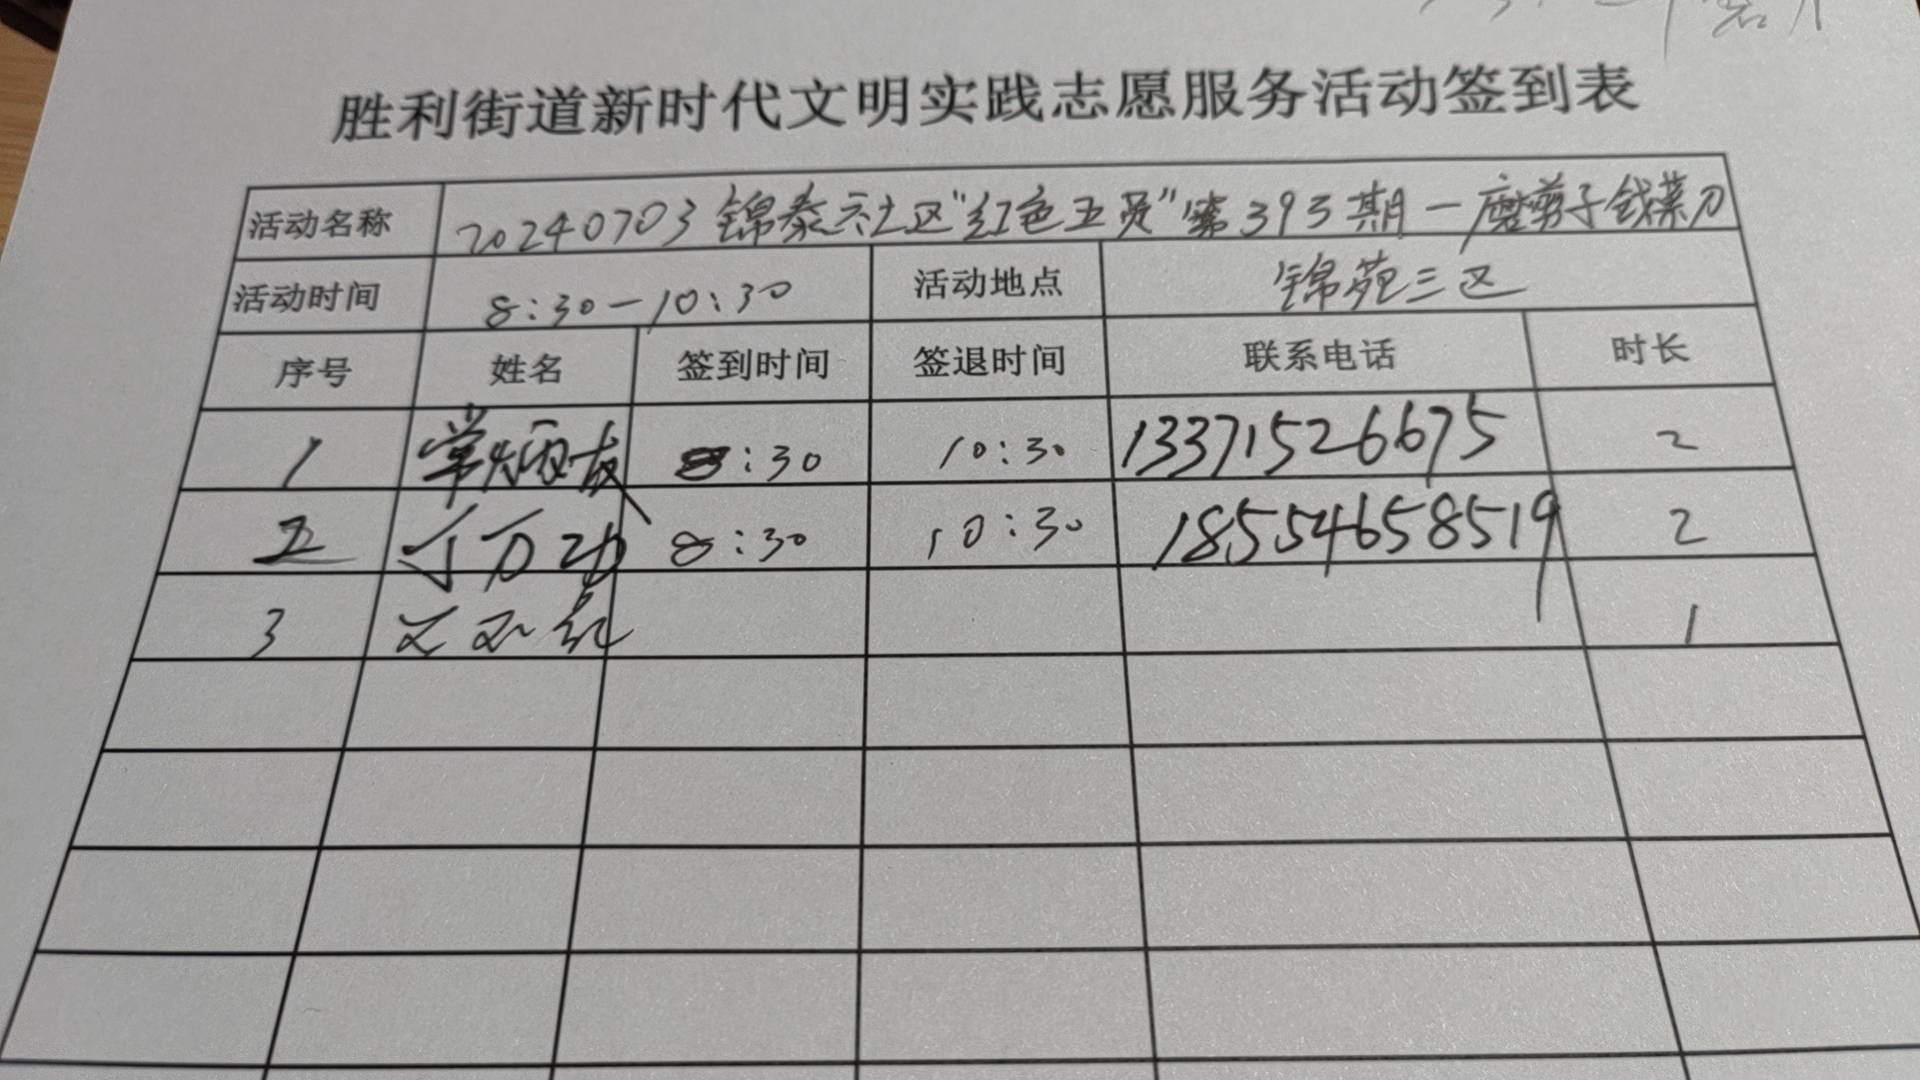 胜利街道新时代文明实践志愿服务活动签到表
活动名称 20240703锦泰六社区"红色五员"第393期一磨剪子戗菜刀
活动时间 8:30-10:30 活动地点 锦苑三区
序号 姓名 签到时间 签退时间 联系电话 时长
1 常炳友 8:30 10:30 13371526675 2
2 丁万功 8:30 10:30 18554658519 2
3 1